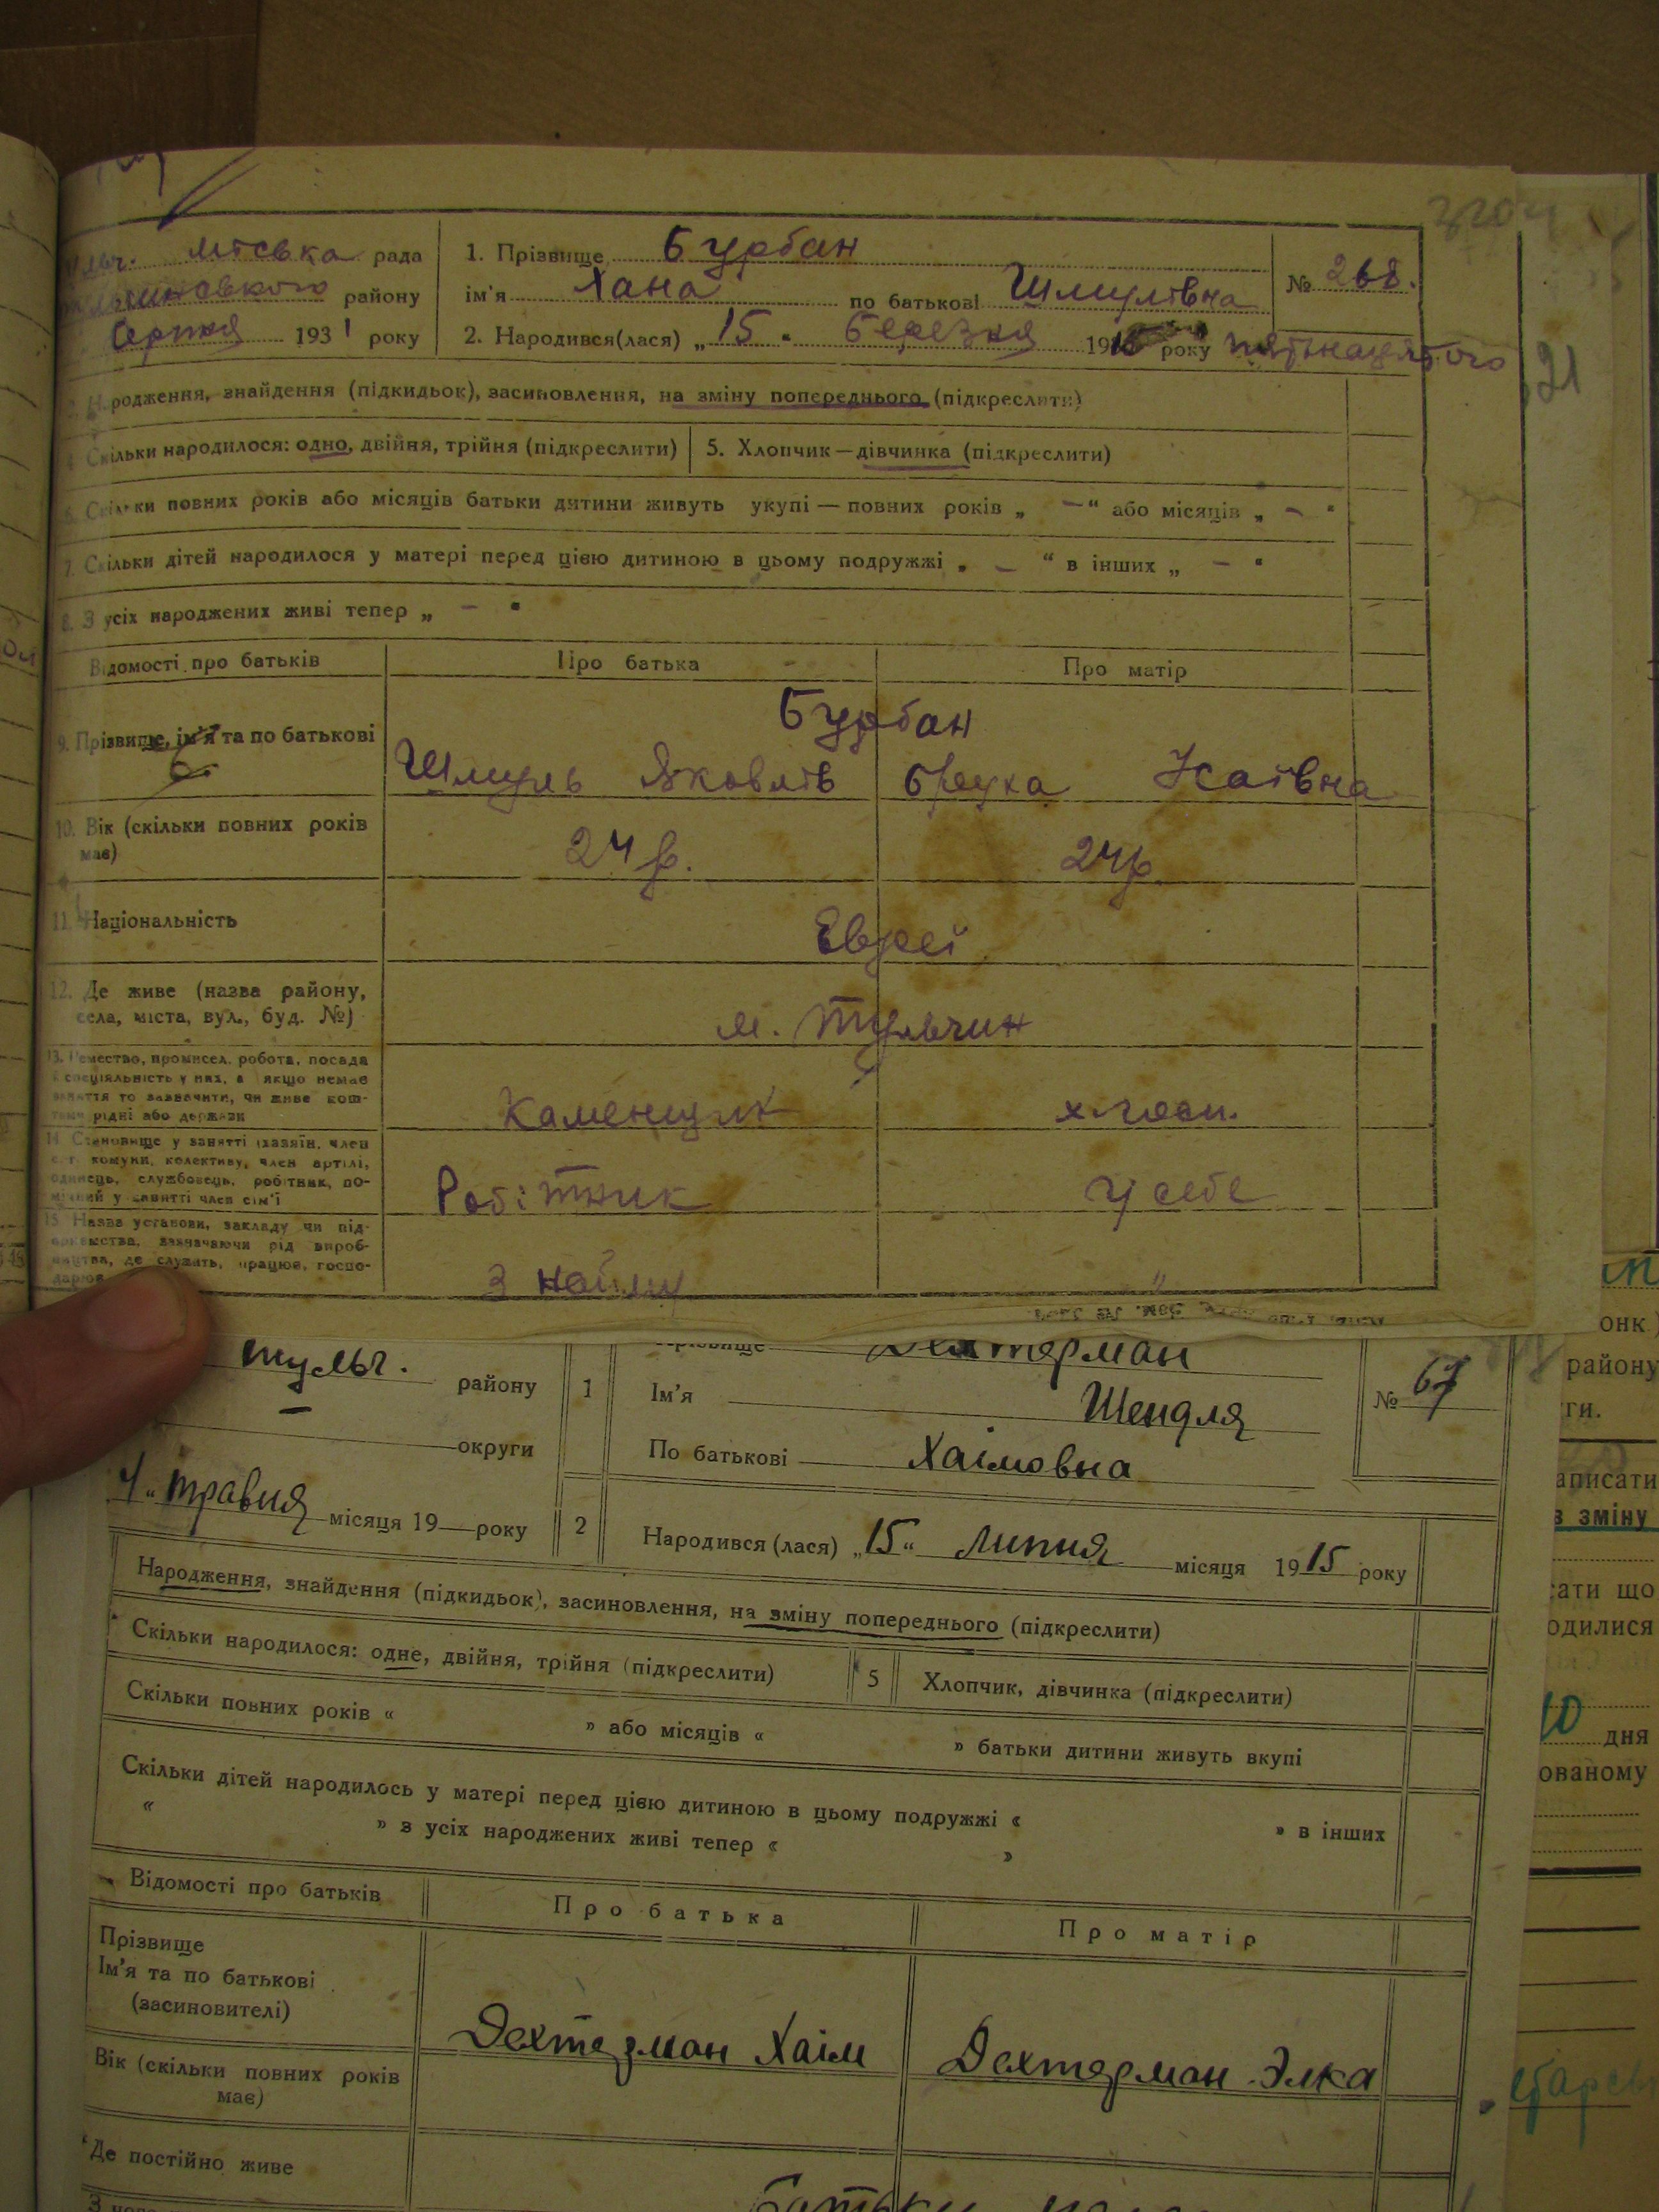 міська рада
району
Серпня 1931 року
1. Прізвище Бурбан
ім'я Хана по батькові Шмулівна
№ 268.
2. Народився(лася) „15" березня 19 року пятнацятого
21
родження, знайдення (підкидьок), засиновлення, на зміну попереднього (підкреслити)
Скільки народилося: одно, двійня, трійня (підкреслити)
5. Хлопчик—дівчинка (підкреслити)
6. Скільки повних років або місяців батьки дитини живуть укупі — повних років „ — “ або місяців „ — "
7. Скільки дітей народилося у матері перед цією дитиною в цьому подружжі „ — “ в інших „ — "
8. З усіх народжених живі тепер „ — "
Відомості про батьків
Про батька
Про матір
9. Прізвище, ім'я та по батькові
Бурбан
Шмуль Яковлів
Бруха
10. Вік (скільки повних років має)
24 р.
24р
11. Національність
Евреї
12. Де живе (назва району,
села, міста, вул., буд. №)
м. Тульчин
13. Ремество, промисел, робота, посада
спеціяльність у них, а якщо немає
заняття то зазначити, чи живе кош-
тами рідні або держави
Каменщик
х. госп.
14. Становище у занятті (хазяїн, член
комуни, колективу, член артілі,
одинець, службовець, робітник, по-
мічний у занятті член сім'ї
Робітник
у себе
15. Назва установи, закладу чи під-
приємства, зазначаючи рід вироб-
ництва, де служить, працює, госпо-
дарює
З найму
"
тульч. району
— округи
4 „ травня місяця 19 року
1
Прізвище Дехтерман
Ім'я Шендля
По батькові Хаімовна
№ 67
2
Народився (лася) „15“ липня місяця 1915 року
Народження, знайдення (підкидьок), засиновлення, на зміну попереднього (підкреслити)
Скільки народилося: одне, двійня, трійня (підкреслити)
5
Хлопчик, дівчинка (підкреслити)
Скільки повних років « » або місяців « » батьки дитини живуть вкупі
Скільки дітей народилось у матері перед цією дитиною в цьому подружжі « » в інших
« » з усіх народжених живі тепер « »
Відомості про батьків
Про батька
Про матір
Прізвище
Ім'я та по батькові
(засиновителі)
Дехтерман Хаім
Дехтерман Элка
Вік (скільки повних років
має)
Де постійно живе
онк
району
ги.
аписати
в зміну
ати що
одилися
10 дня
ованому